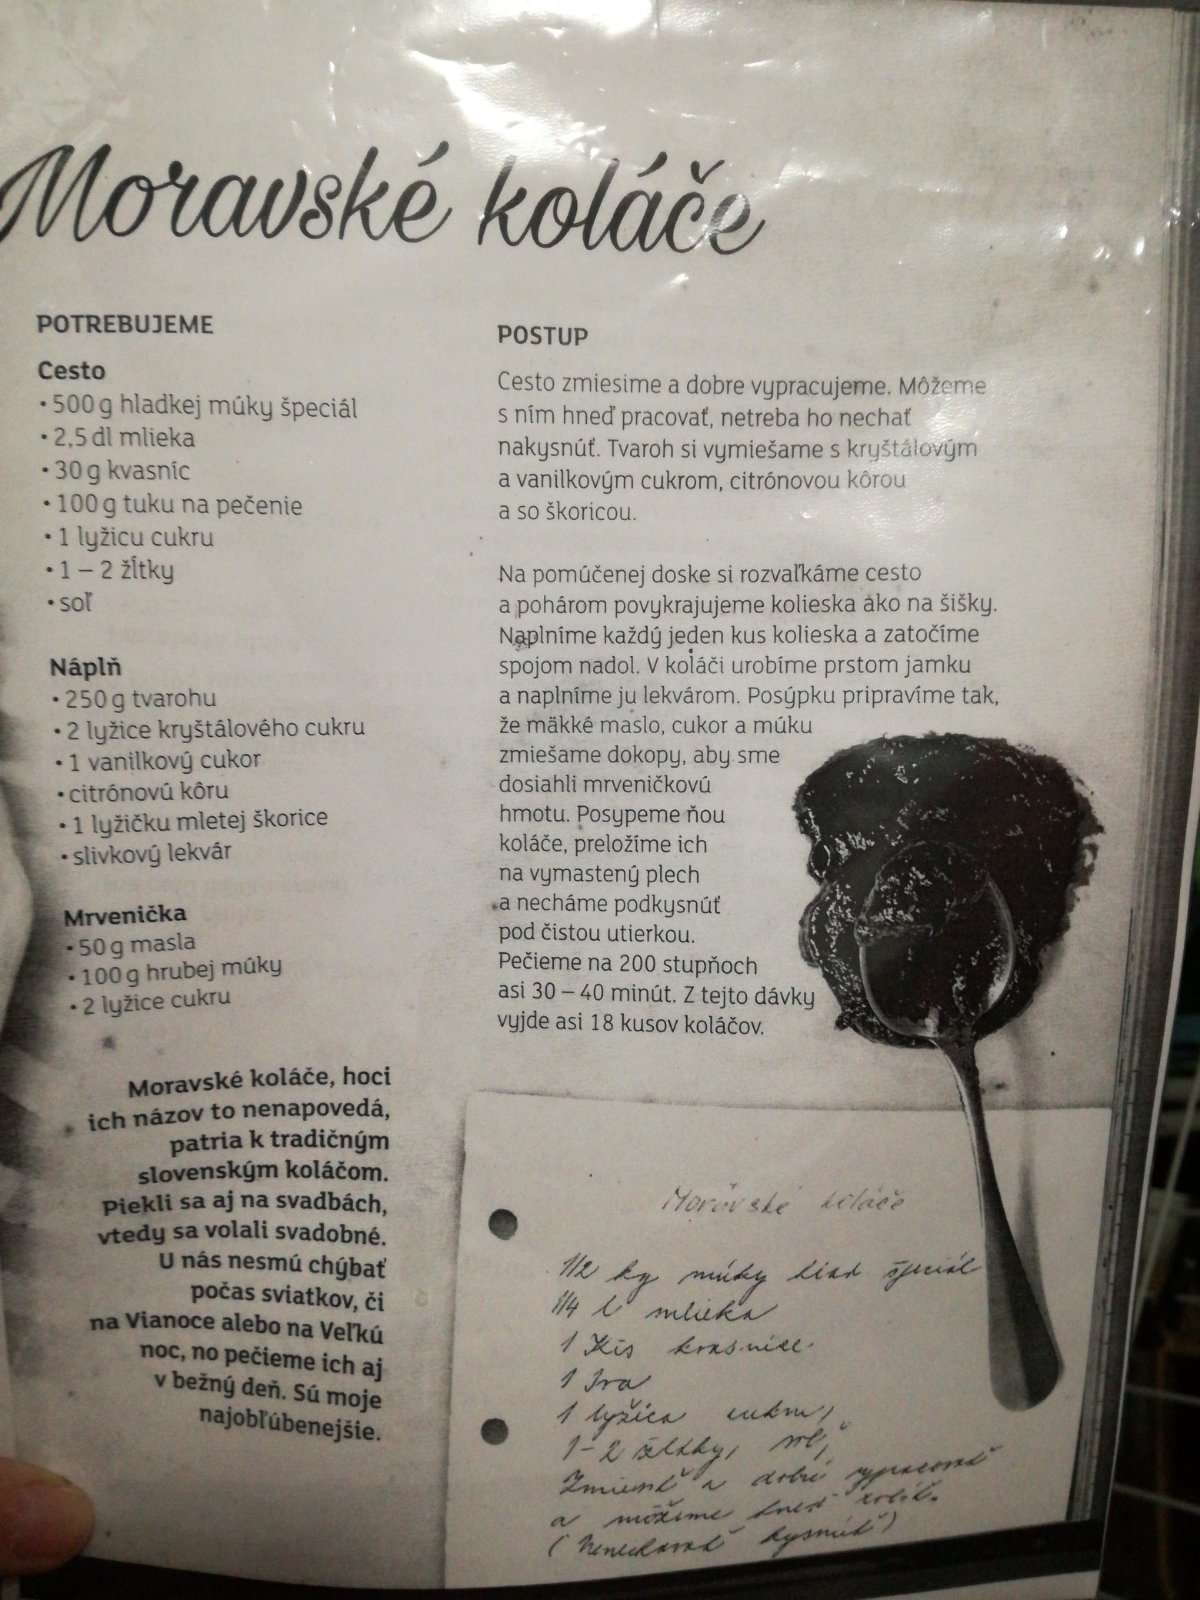 Moravské koláče
POTREBUJEME
Cesto
• 500 g hladkej múky špeciál
• 2,5 dl mlieka
• 30 g kvasníc
• 100 g tuku na pečenie
• 1 lyžicu cukru
• 1 – 2 žĺtky
• soľ
Náplň
• 250 g tvarohu
• 2 lyžice kryštálového cukru
• 1 vanilkový cukor
• citrónovú kôru
• 1 lyžičku mletej škorice
• slivkový lekvár
Mrvenička
• 50 g masla
• 100 g hrubej múky
• 2 lyžice cukru
Moravské koláče, hoci
ich názov to nenapovedá,
patria k tradičným
slovenským koláčom.
Piekli sa aj na svadbách,
vtedy sa volali svadobné.
U nás nesmú chýbať
počas sviatkov, či
na Vianoce alebo na Veľkú
noc, no pečieme ich aj
v bežný deň. Sú moje
najobľúbenejšie.
POSTUP
Cesto zmiesime a dobre vypracujeme. Môžeme
s ním hneď pracovať, netreba ho nechať
nakysnúť. Tvaroh si vymiešame s kryštálovým
a vanilkovým cukrom, citrónovou kôrou
a so škoricou.
Na pomúčenej doske si rozvaľkáme cesto
a pohárom povykrajujeme kolieska ako na šišky.
Naplníme každý jeden kus kolieska a zatočíme
spojom nadol. V koláči urobíme prstom jamku
a naplníme ju lekvárom. Posýpku pripravíme tak,
že mäkké maslo, cukor a múku
zmiešame dokopy, aby sme
dosiahli mrveničkovú
hmotu. Posypeme ňou
koláče, preložíme ich
na vymastený plech
a necháme podkysnúť
pod čistou utierkou.
Pečieme na 200 stupňoch
asi 30 – 40 minút. Z tejto dávky
vyjde asi 18 kusov koláčov.
Moravské koláče
1/2 kg múky hlad. špeciál
1/4 l mlieka
1 kvasnice
1 Iva
1 lyžica cukru,
1-2 žĺtky, soľ,
Zmiesiť a dobre vypracovať
a môžeme hneď robiť.
(Nenechávať kysnúť)